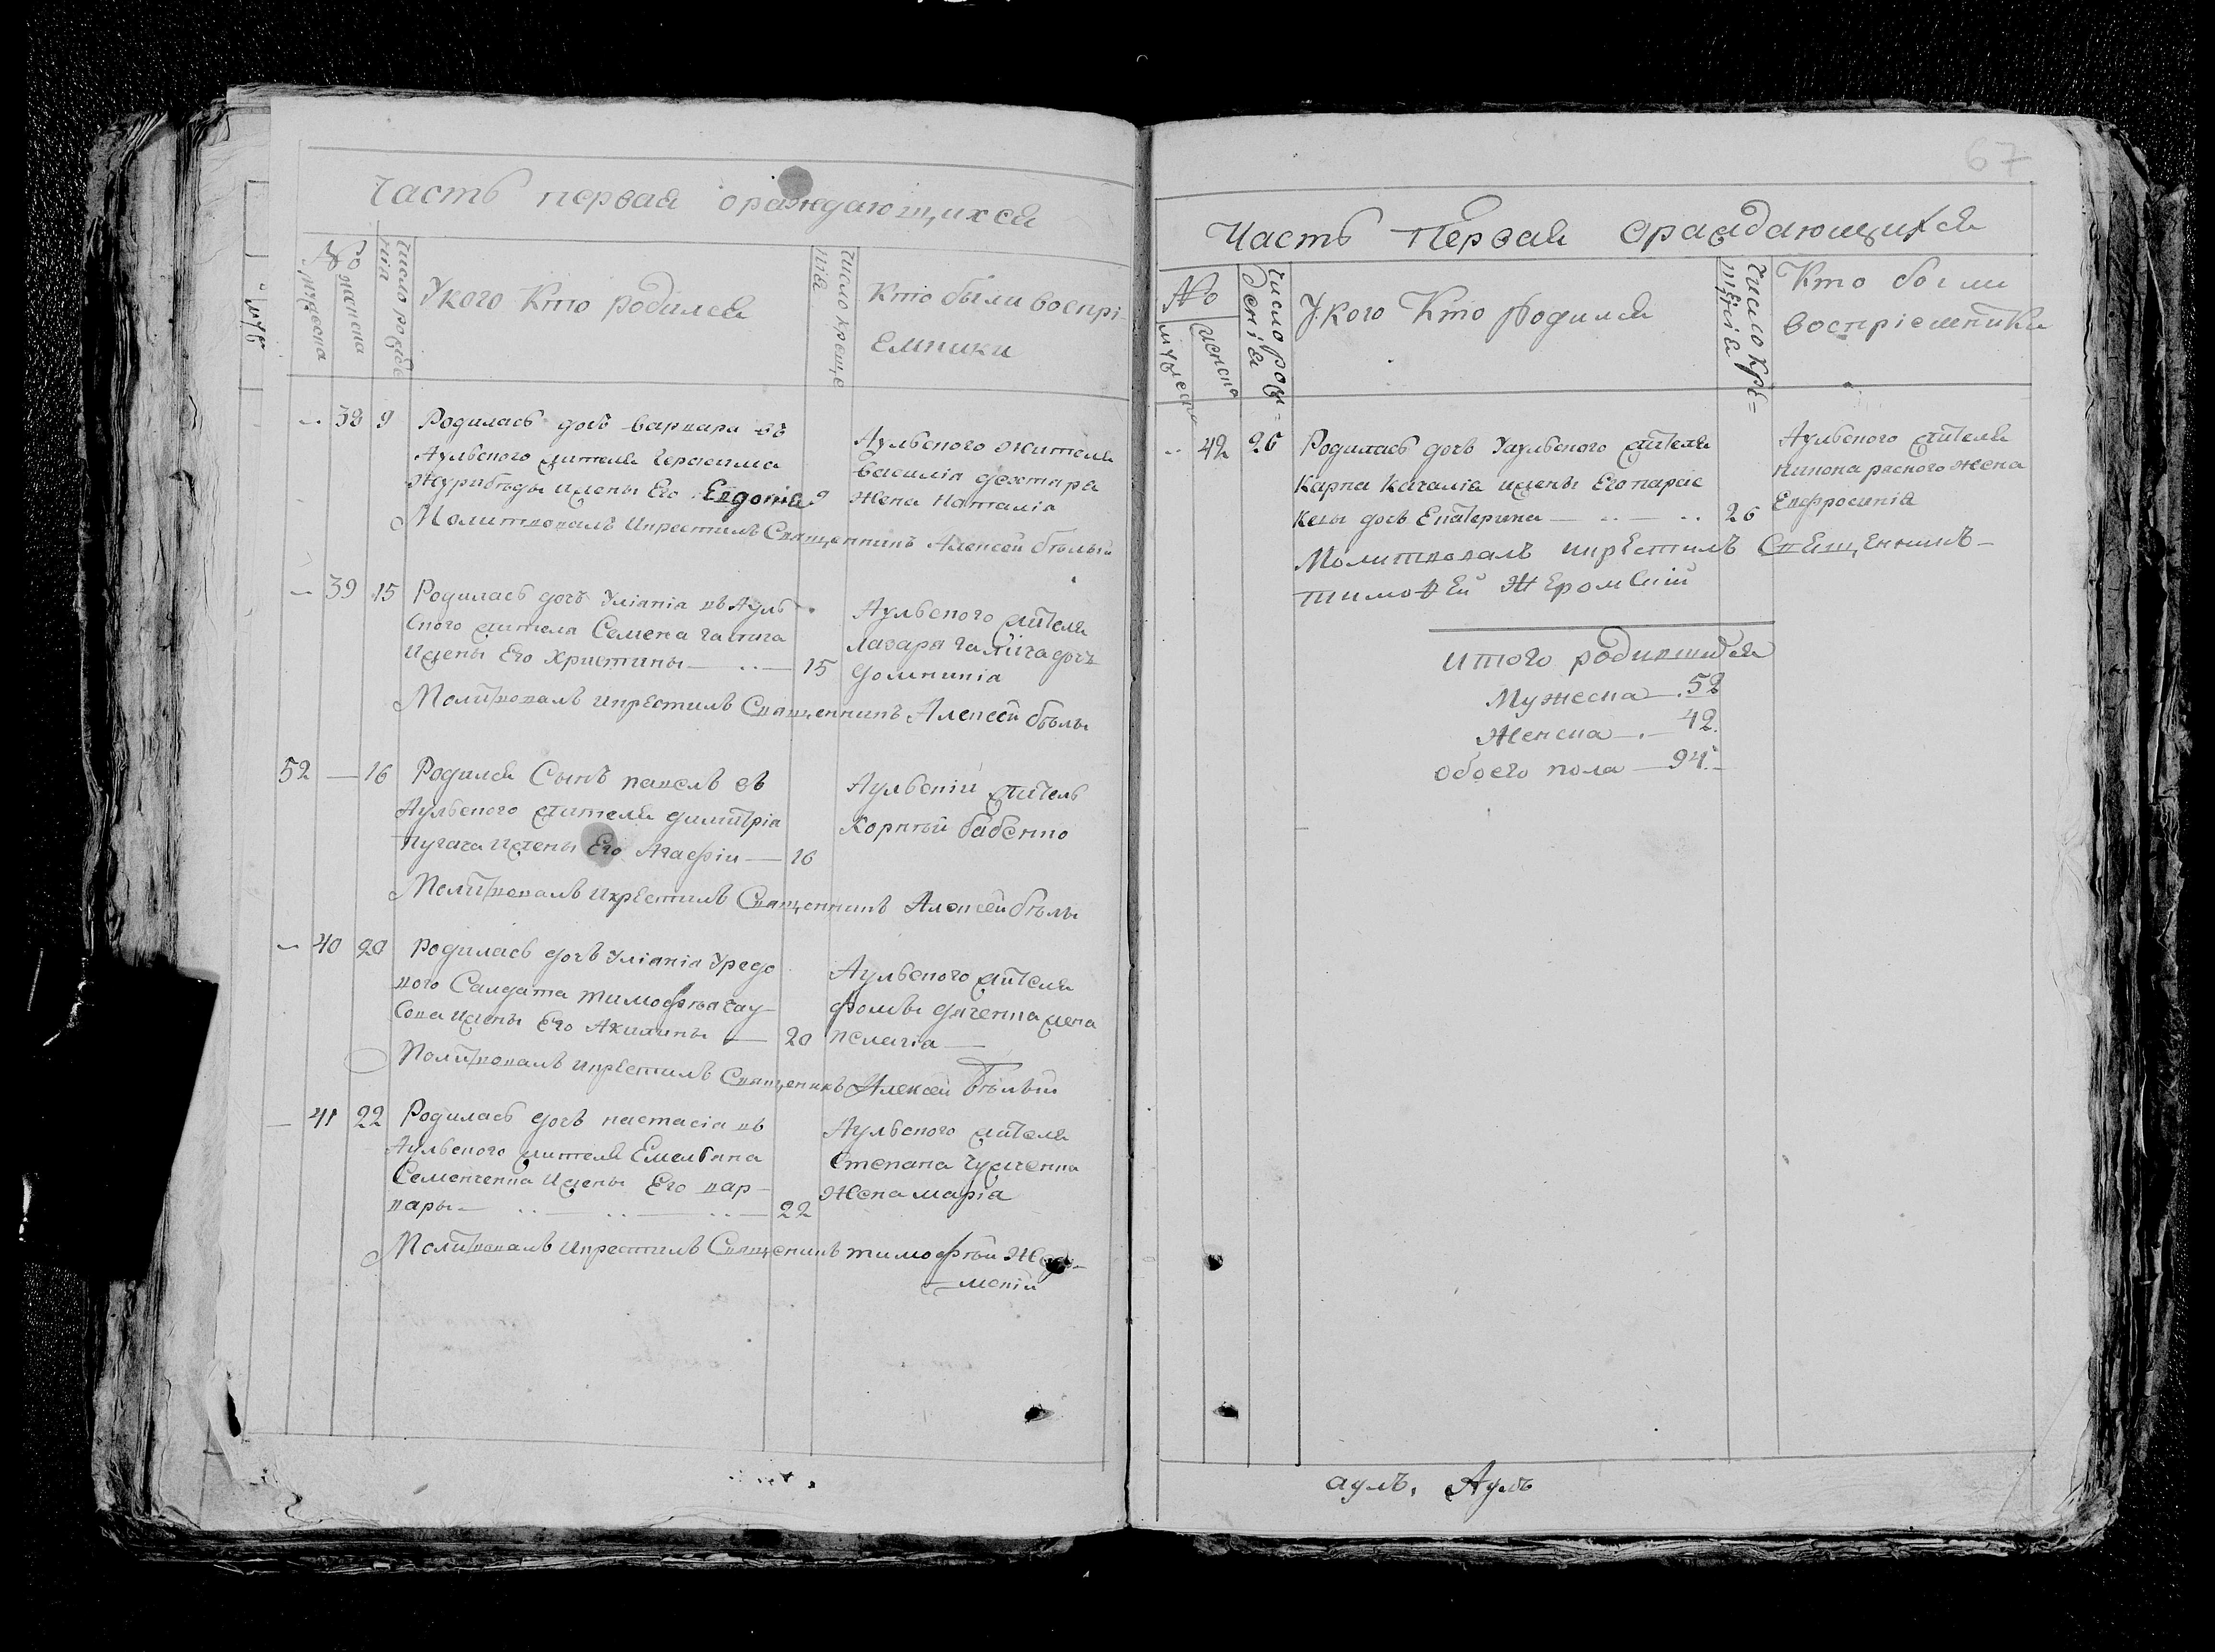 Часть первая ораждающихся
№
мужеска
женска
число рожде
нія
Укого Кто родился
число креще
нія
Кто были воспрі
Емники
38 9 Родилась дочъ варвара въ
Аульского жителя Герасима
Журибѣды ижены Его Евдокіи 9
Аульского жителя
василія дехтяра
жена наталія
Молитвовалъ икрестилъ Священникъ Алексѣй бѣлый
39 15 Родилась дочъ Уліанія въ Ауль
ского жителя Семена галича
Ижены Его христины 15
Аульского жителя
лазаря галича дочь
домникія
Молитвовалъ икрЕстилъ Священникъ Алексѣй бѣлы
52 — 16 Родился Сынъ павелъ въ
Аульского жителя димитрія
пугача Ижены Его Агафіи — 16
Аульскій житель
Корнѣй бабенко
Молитвовалъ икрЕстилъ Священникъ Алексѣй бѣлы
40 20 Родилась дочъ Уліанія Урядо
вого Салдата тимофѣя
Ижены Его Акилины — 20
Аульского жителя
Фомы дяченка жена
пелагіа —
Молитвовалъ икрЕстилъ Священикъ Алексей бѣлый
— 41 22 Родилась дочъ настасіа въ
Аульского жителя Емельяна
Семенченка Ижены Его вар-
вары — 22
Аульского жителя
Степана
Жена маріа
Молитвовалъ икрестилъ Священикъ тимофѣй Жеро-
—мскій
67
Часть Первая ораждающихся
№
мужеск
женска
Число рож=
деніЯ
У кого Кто родился
Число Кре=
щенія
Кто были
воспріемники
42 26 Родилась дочъ Уаульского жителя
Карпа качаліа ижены Его парас
кевы дочъ Екатерина — 26
Аульского жителя
никона расного жена
Евфросиніа
Молитвовалъ икрЕстилъ Священникъ—
тимоѳЕй ЖЕромскій
итого родившихся
Мужеска — 52
Женска — 42.
обоего пола — 94.—
аулъ. Аулъ